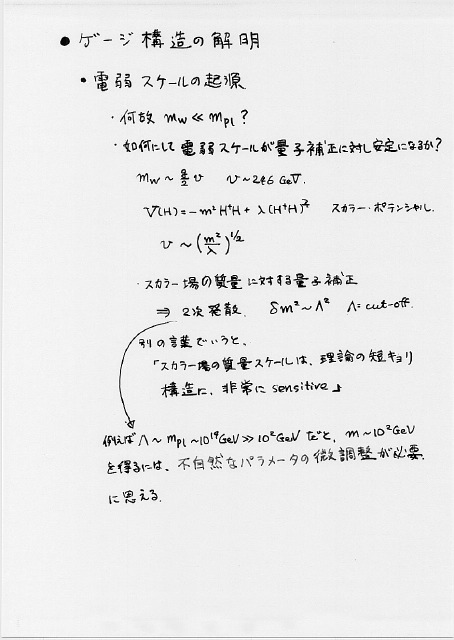 ● ゲージ構造の解明
・電弱スケールの起源
・何故 mw ≪ mpl ?
・如何にして電弱スケールが量子補正に対し安定になるか?
mw ~ g/2 v v ~ 246 GeV.
V(H) = -m² H†H + λ(H†H)² スカラー・ポテンシャル.
v ~ (m²/λ)^1/2
・スカラー場の質量に対する量子補正
⇒ 2次発散. δm² ~ Λ² Λ = cut-off.
別の言葉でいうと、
「スカラー場の質量スケールは、理論の短キョリ
構造に、非常に sensitive」
例えば Λ ~ mpl ~ 10¹⁹ GeV ≫ 10² GeV だと、m ~ 10² GeV
を得るには、不自然なパラメータの微調整が必要
に思える.